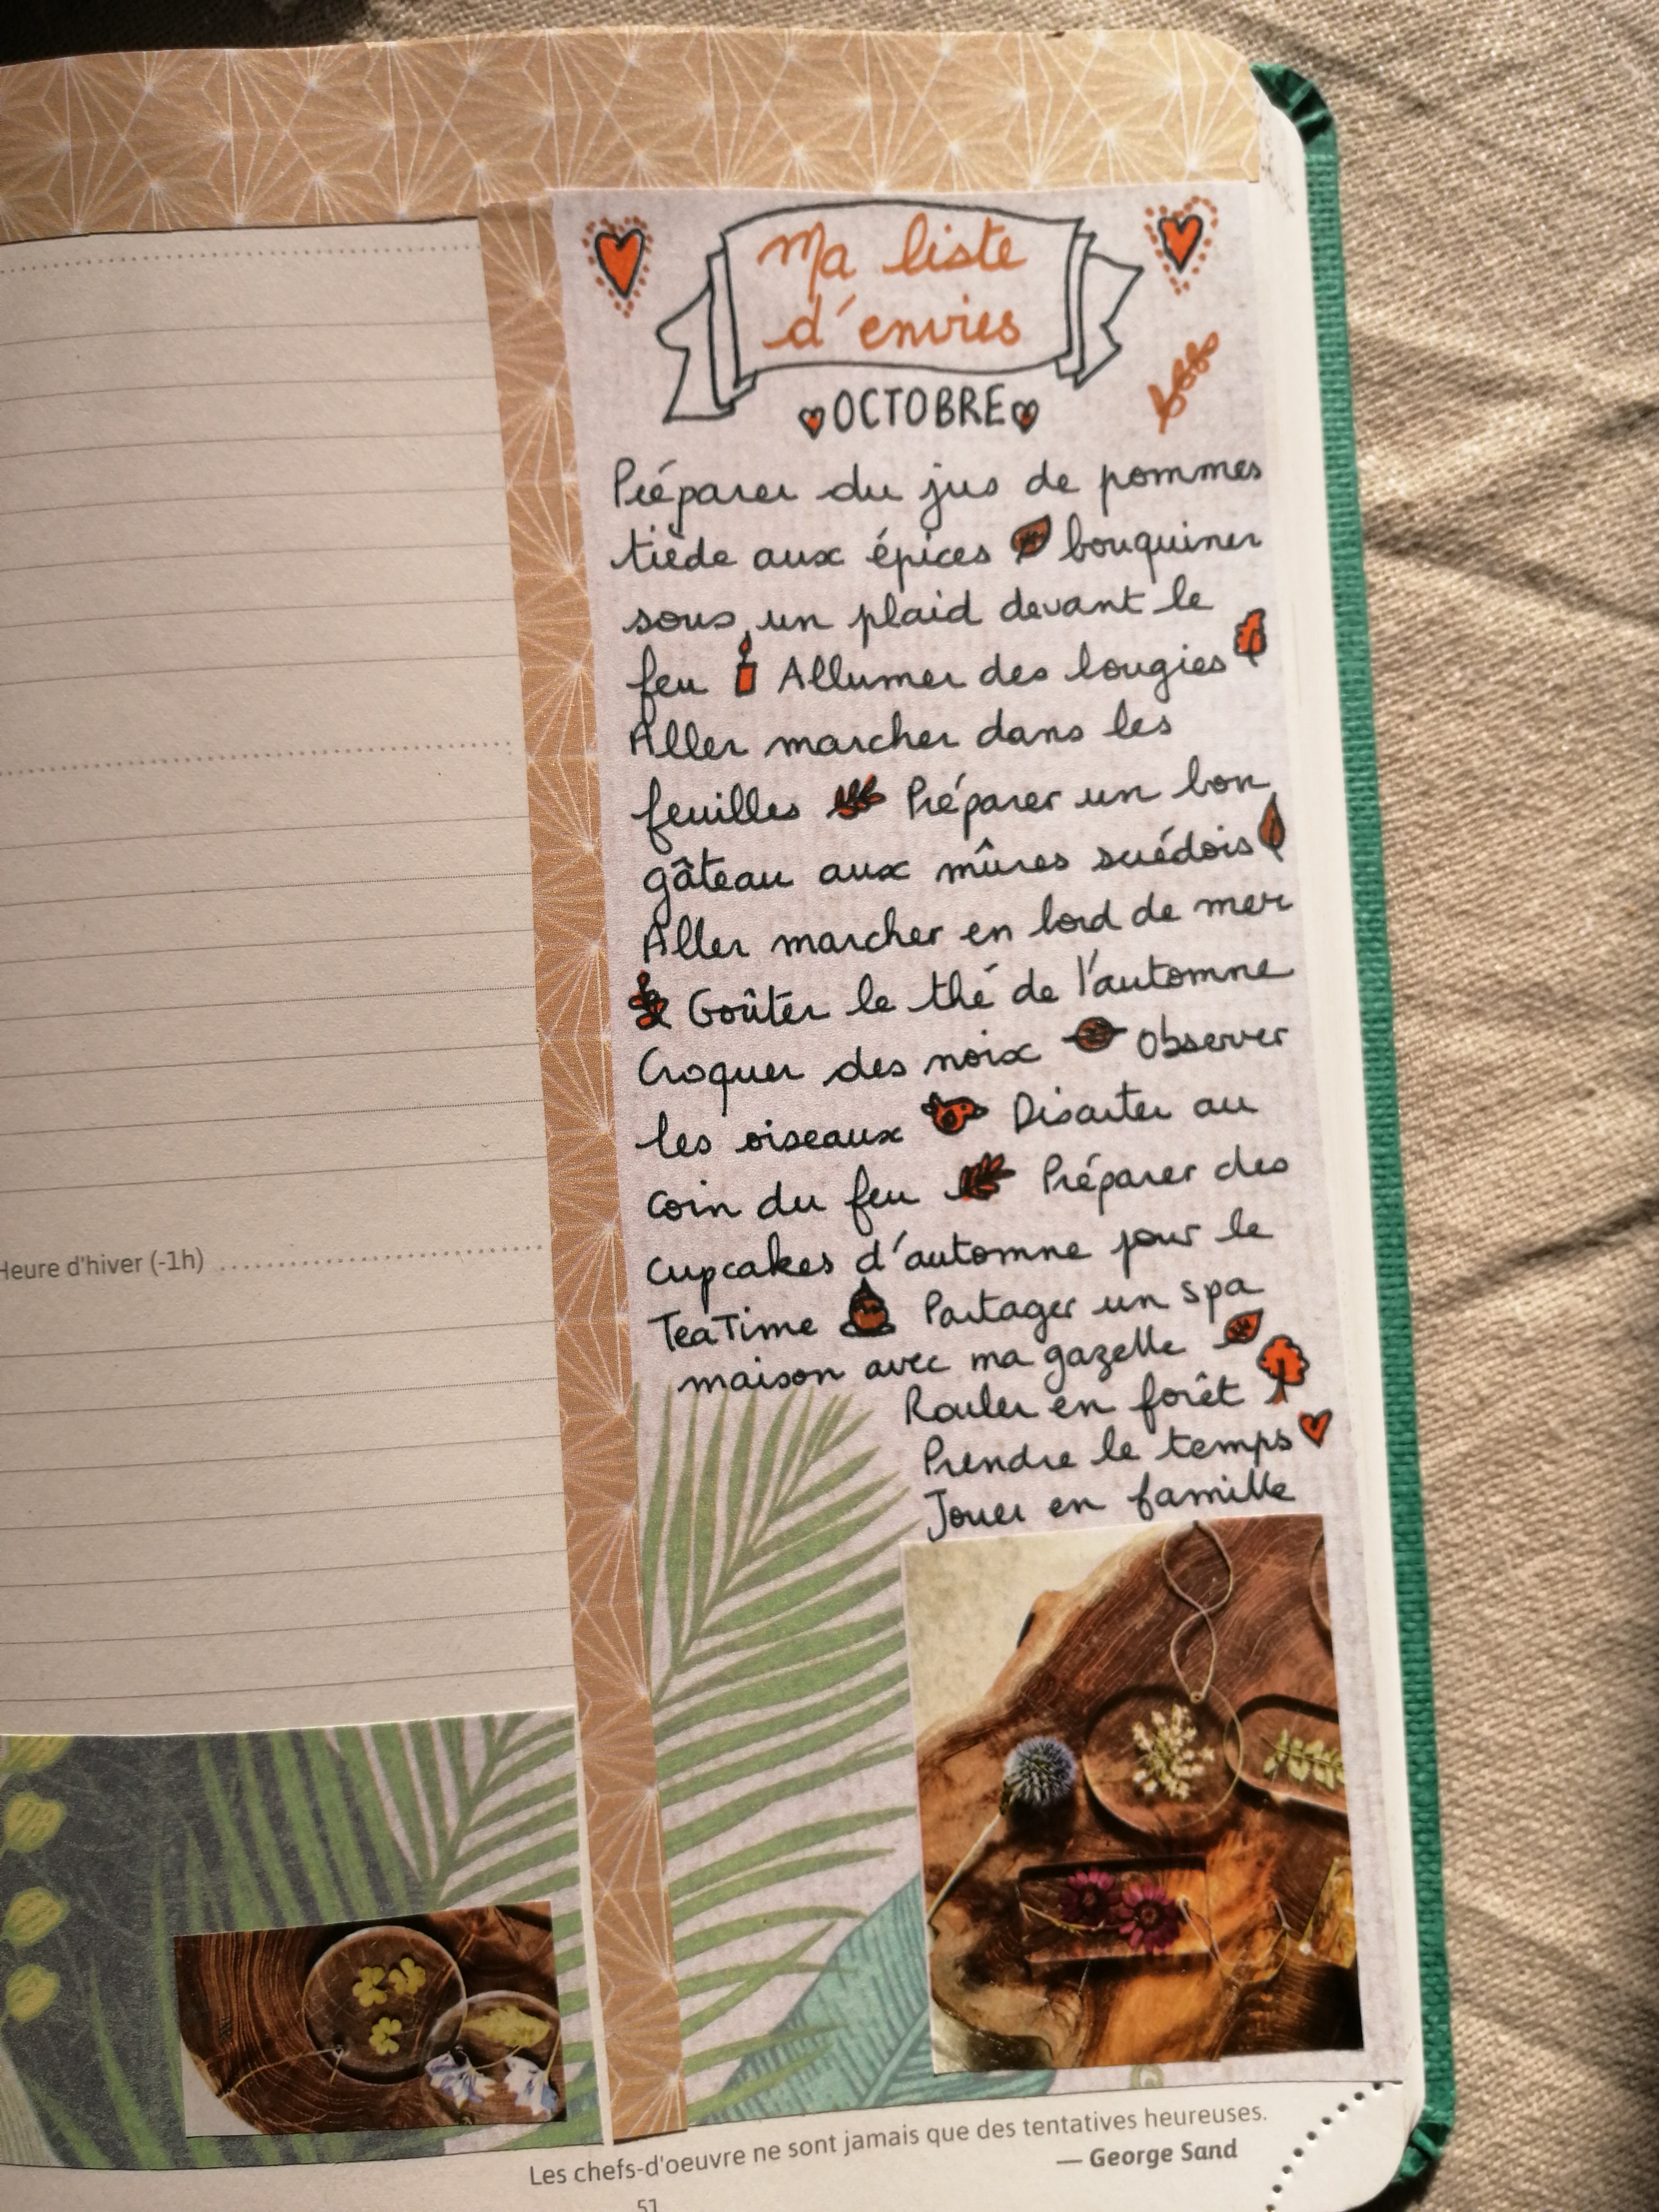 Ma liste
d'envies
OCTOBRE
Préparer du jus de pommes
tiède aux épices bouquiner
sous un plaid devant le
feu Allumer des bougies
Aller marcher dans les
feuilles Préparer un bon
gâteau aux mûres suédois
Aller marcher en bord de mer
Goûter le thé de l'automne
Croquer des noix Observer
les oiseaux Discuter au
coin du feu Préparer des
Cupcakes d'automne pour le
TeaTime Partager un spa
maison avec ma gazelle
Rouler en forêt
Prendre le temps
Jouer en famille
Heure d'hiver (-1h)
Les chefs-d'oeuvre ne sont jamais que des tentatives heureuses.
— George Sand
51